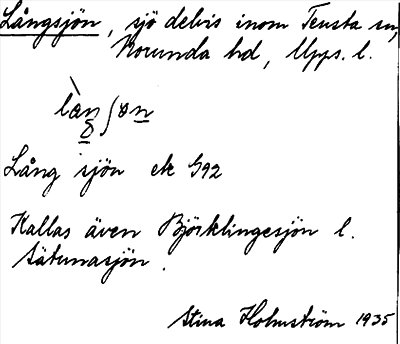 Långsjön, sjö delvis inom Tensta sn,
Norunda hd, Upps. l.
Lång sjön ek G92
Kallas även Björklingesjön l.
Sätunasjön.
Stina Holmström 1935